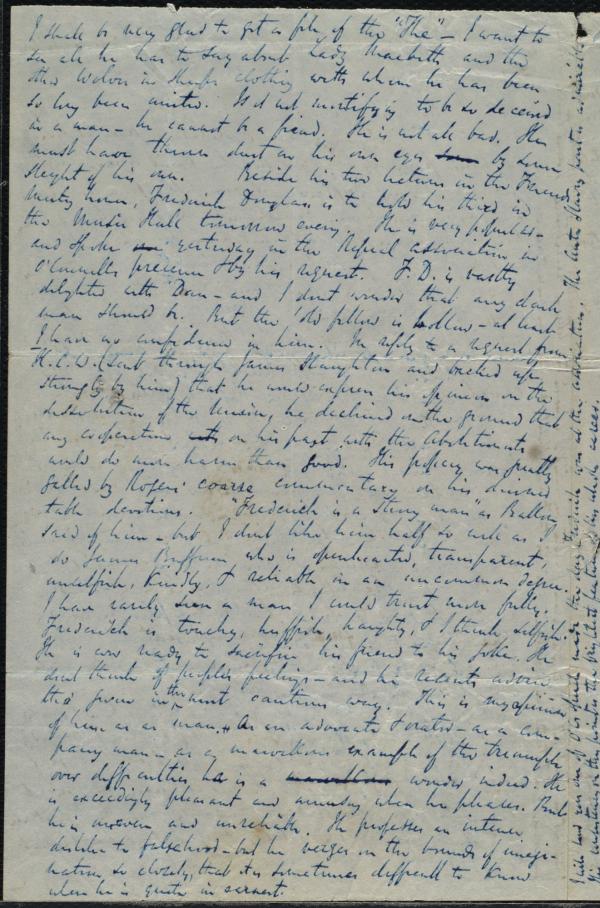 I shall be very glad to get a file of the "The" – I want to
see all he has to say about Lady Macbeth and the
other Wolves in sheeps clothing with whom he has been
so long been united. Is it not mortifying to be so deceived
in a man – he cannot be a fiend. He is not all bad. He
must have thrown dust in his own eyes by some
sleight of his own. Beside his two lectures in the Friends
Meeting house, Frederick Douglass is to hold his third in
the Music Hall tomorrow evening. He is very popular –
and spoke yesterday in the Repeal association in
O'Connells presence & by his request. F. D. is vastly
delighted with Dan – and I dont wonder that any dark
man should be. But the old fellow is hollow – at least
I have no confidence in him. In reply to a request from
H.C.W. (sent through James Haughton and backed up
strongly by him) that he would express his opinion on the
dissolution of the Union, he declined on the ground that
any cooperation on his part with the Abolitionists
would do more harm than good. His popery was greatly
galled by Rogers' coarse commentary on his
table devotions. "Frederick is a Strong man" as
said of him – but I dont like him half so well as I
do James Buffum who is openhearted, transparent,
unselfish, kindly, & reliable in an uncommon degree.
I have rarely seen a man I could trust more fully.
Frederick is touchy, huffish, haughty, & I think selfish.
He is ever ready to sacrifice his friend to his joke. He
dont think of peoples feelings – and he resents advice
tho' given in the most cautious way. This is my opinion
of him as a man. As an advocate & orator – as a com-
pany man – as a marvellous example of the triumph
over difficulties he is a wonder indeed. He
is exceedingly pleasant and amusing when he pleases. But
he is uneven and unreliable. He professes an intense
dislike to falsehood – but he verges on the bounds of imagi-
nation so closely, that it is sometimes difficult to know
when he is quite in earnest.